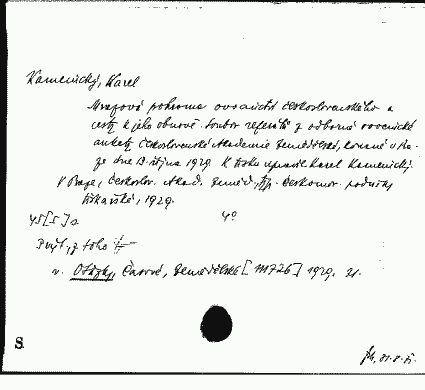 Kamenický, Karel
Mrazová pohroma ovocnictví československého a
cesty k jeho obnově. Soubor referátů z odborné ovocnické
ankety Československé Akademie Zemědělské, konané v Pra-
ze dne 19. října 1929. K tisku upravil Karel Kamenický.
V Praze, Českoslov. Akad. Zeměd., Českomor. podniky
tiskařské, 1929.
45[5] s. 4°
z toho
v. Otázky, Časové, Zemědělské [III 726] 1929, 21.
S